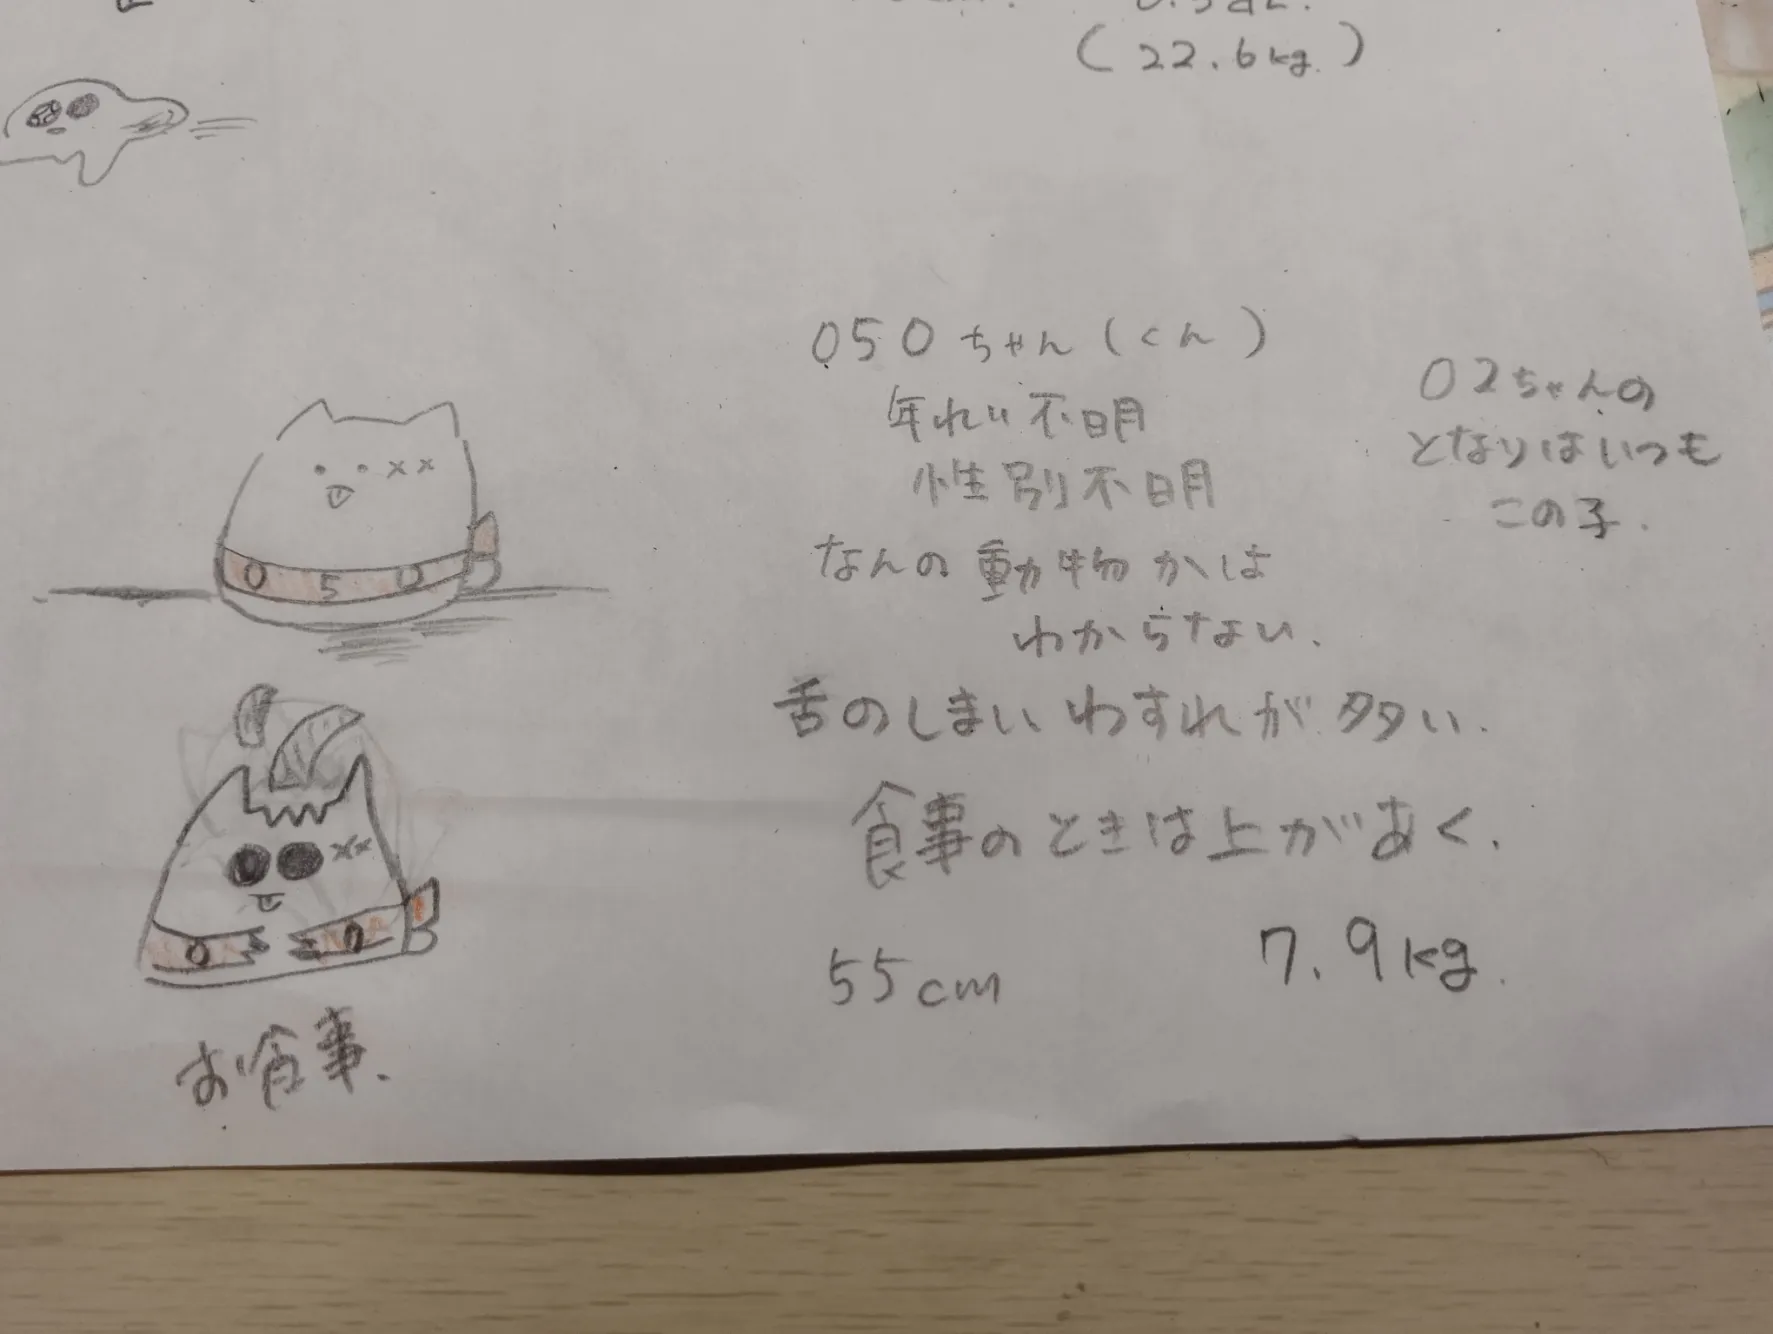 (22.6kg.)
050ちゃん(くん)
年れい不明
性別不明
なんの動物かは
わからない.
舌のしまいわすれが多い.
食事のときは上があく.
55cm
7.9kg.
02ちゃんの
となりはいつも
この子.
××
0 5 0
××
0
お食事.